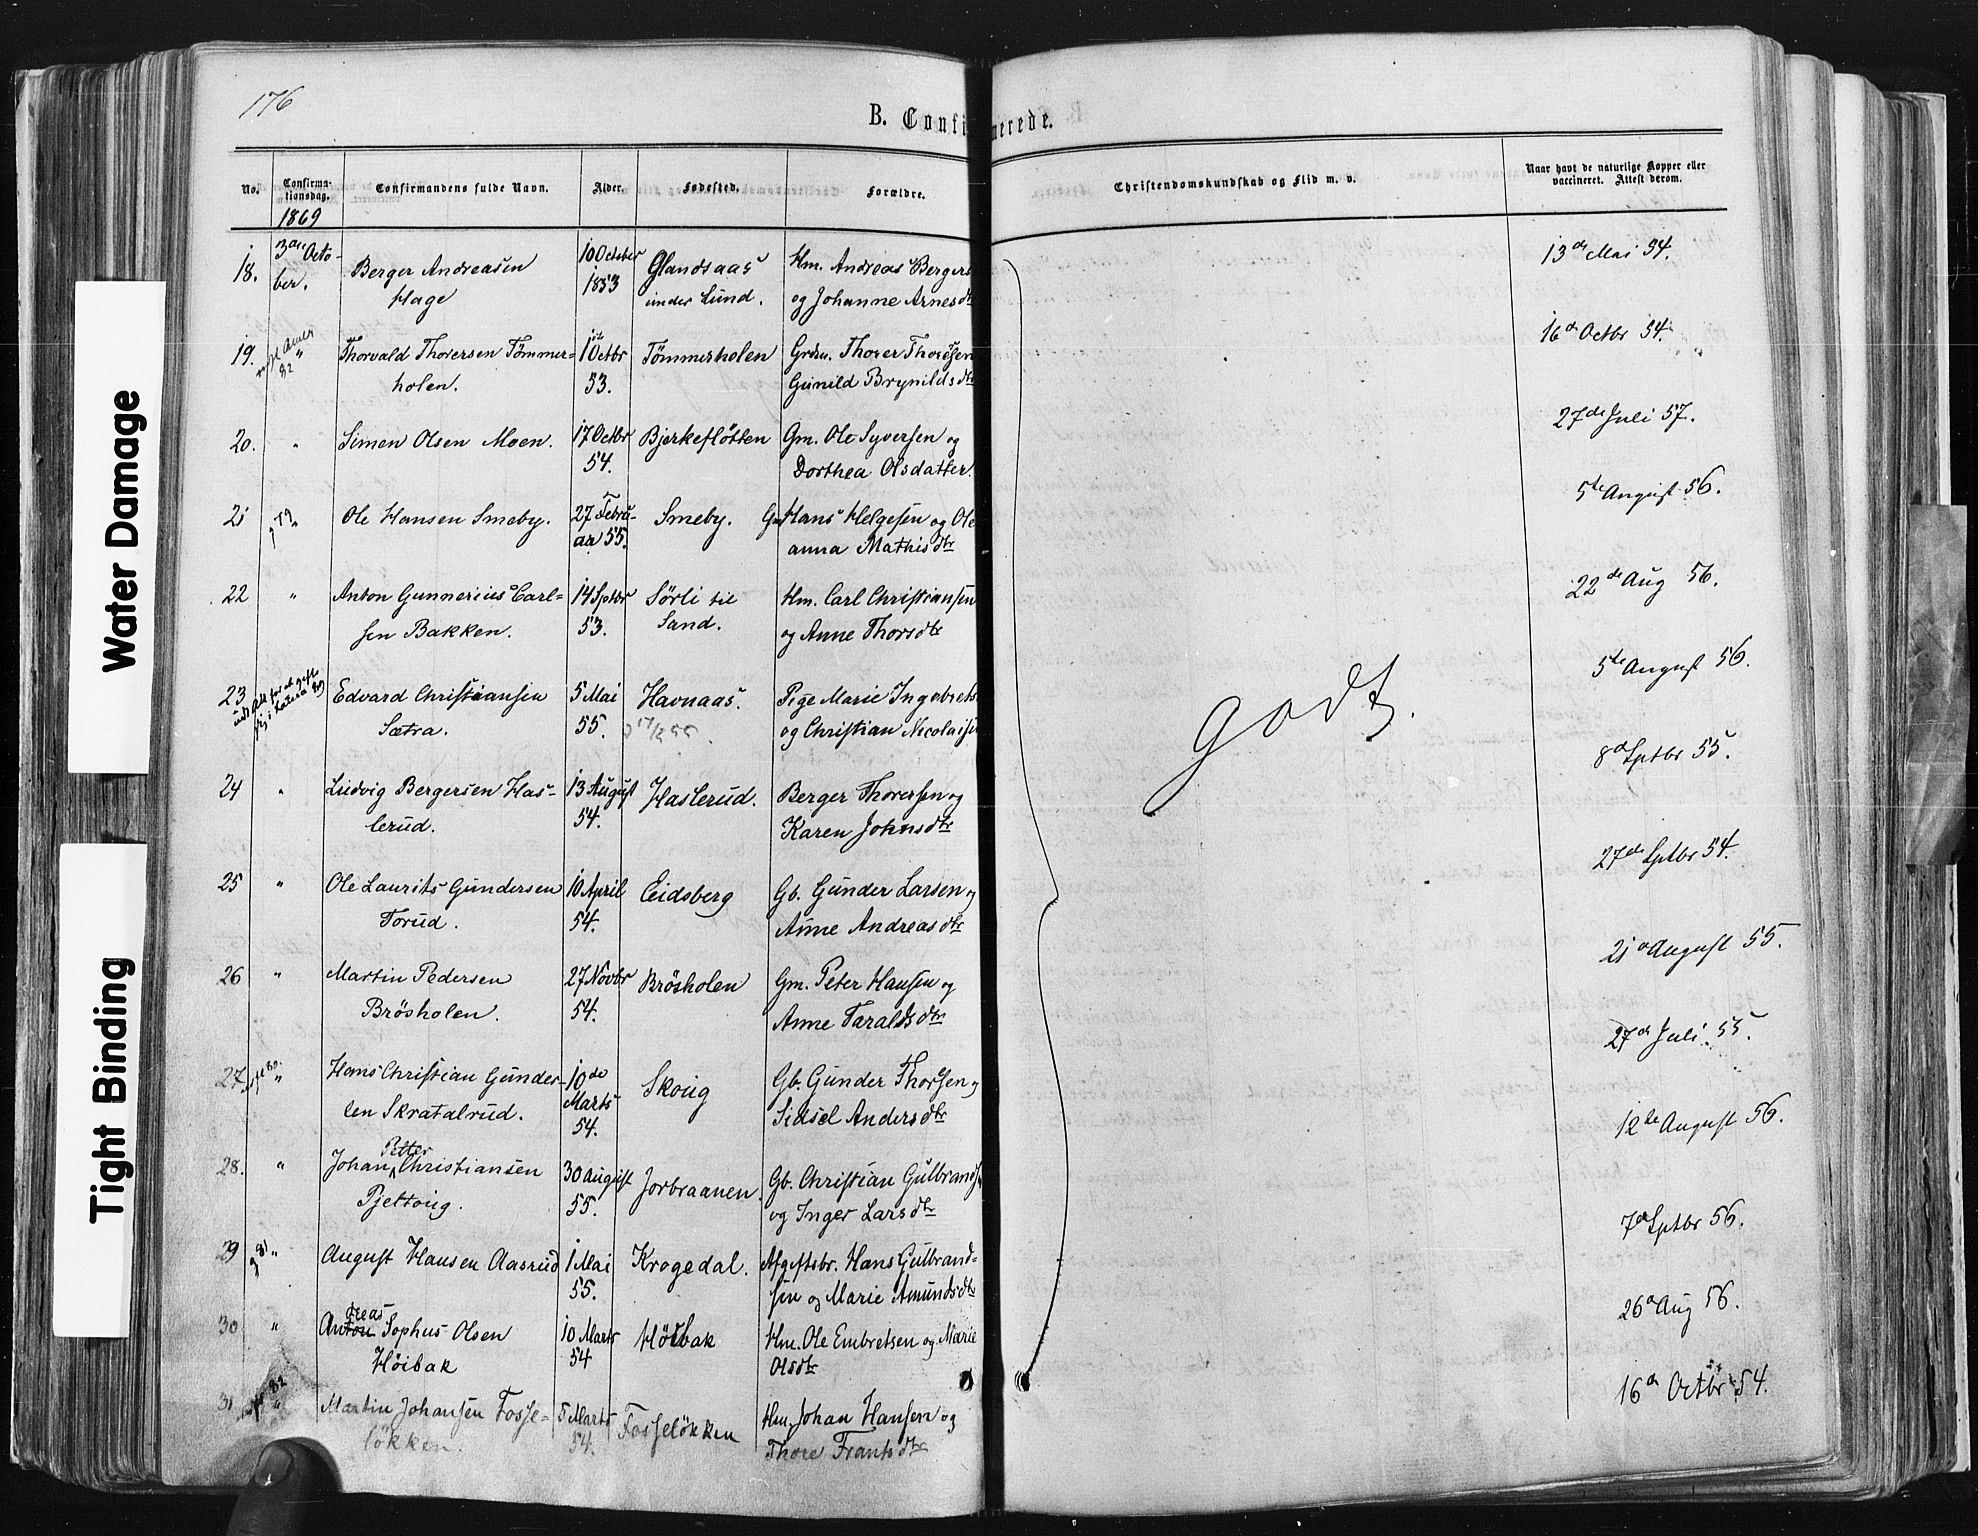 176
B. Confirmerede.
No.
Confirma-
tionsdag.
Confirmandens fulde Navn.
Alder.
Fødested.
Forældre.
Christendomskundskab og Flid m. v.
Naar havt de naturlige Kopper eller
vaccineret. Attest derom.
1869
18. 3die Octo- Berger Andreasen 10 October Glandsaas Hm. Andreas Bergers 13de Mai 54.
ber. Hage 1853 under Lund. og Johanne Arnesdtr
19. " Thorvald Thorersen Tømmer- 1 Octbr Tømmerholen Grdm. Thorer Thoresen 16de Octbr 54.
82 holen. 53. Gunild Brynildsdtr
20. " Simen Olsen Moen. 17 Octbr Bjerkefløtten Gm. Ole Syversen og 27de Juli 57.
54. Dorthea Olsdatter.
21 " Ole Hansen Smeby. 27 Febru- Smeby. Gm Hans Helgesen og Ole 5te August 56.
ar 55. anna Mathisdtr
22 " Anton Gunnerius Carl- 14 Sptbr Sörli til Hm. Carl Christiansen 22de Aug 56.
sen Bakken. 53. Sand. og Anne Thorsdtr
23 Edvard Christiansen 5 Mai Havnaas. Pige Marie Ingebrets 5te August 56.
Sætra. 55. og Christian Nicolaisen
24 " Ludvig Bergersen Has- 13 August Haslerud. Berger Thorersen og 8de Sptbr 55.
lerud. 54. Karen Johnsdtr
25 " Ole Laurits Gundersen 10 April Eidsberg Gb. Gunder Larsen og 27de Sptbr 54.
Torud. 54. Anne Andreasdtr
26 " Martin Pedersen 27 Novbr Brösholen Gm. Peter Hansen og 21de August 55.
Brösholen. 54. Anne Taraldsdtr
27 " Hans Christian Gunder- 10de Skoug Gb. Gunder Thorsen og 27de Juli 55.
sen Skratalrud. Marts Sidsel Andersdtr
54.
Petter
28. " Johan Christiansen 30 august Jorbraanen. Gb. Christian Gulbrands 12te August 56.
Pjeltoug. 55. og Inger Larsdtr
29 81 " August Hansen Aasrud 1 Mai Krogedal. Afgiftsbr. Hans Gulbrand- 7de Sptbr 56.
55. sen og Marie Amundsdtr
dreas
30 " Anton Sophus Olsen 10 Marts Höibak Hm. Ole Embretsen og Marie 26de Aug 56.
Höibak 54 Olsdtr
31 82 " Martin Johansen Fosse- 5 Marts Fosselökken Hm. Johan Hansen og 16de Octbr 54.
lökken. 54. Thore Frantsdtr
godt.
Water Damage
Tight Binding